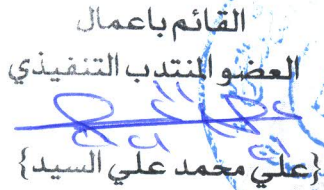 القائم باعمال
العضو المنتدب التنفيذي
{علي محمد علي السيد}